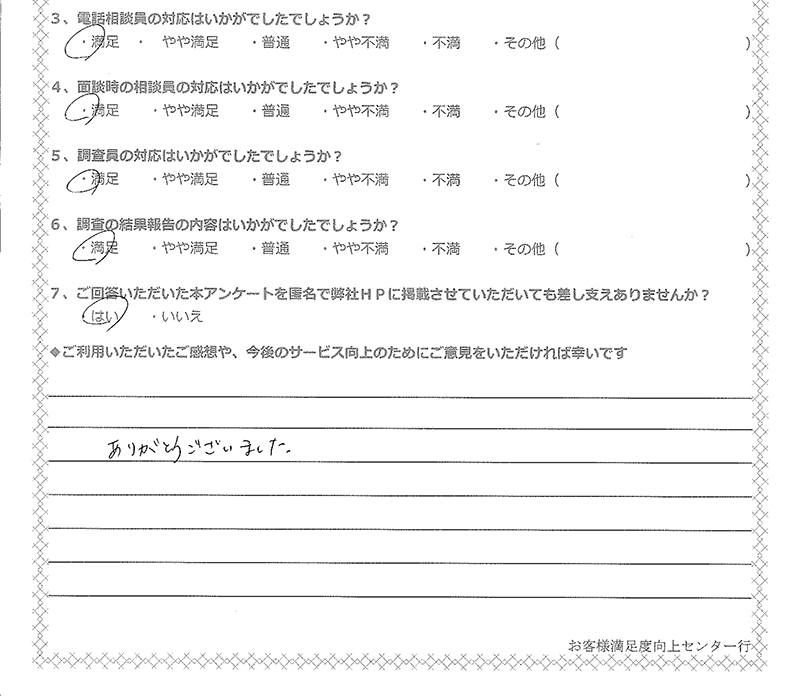 3、電話相談員の対応はいかがでしたでしょうか？
・満足 ・ やや満足 ・普通 ・やや不満 ・不満 ・その他（ ）
4、面談時の相談員の対応はいかがでしたでしょうか？
・満足 ・やや満足 ・普通 ・やや不満 ・不満 ・その他（ ）
5、調査員の対応はいかがでしたでしょうか？
・満足 ・やや満足 ・普通 ・やや不満 ・不満 ・その他（ ）
6、調査の結果報告の内容はいかがでしたでしょうか？
・満足 ・やや満足 ・普通 ・やや不満 ・不満 ・その他（ ）
7、ご回答いただいた本アンケートを匿名で弊社ＨＰに掲載させていただいても差し支えありませんか？
・はい ・いいえ
◆ご利用いただいたご感想や、今後のサービス向上のためにご意見をいただければ幸いです
ありがとうございました。
お客様満足度向上センター行